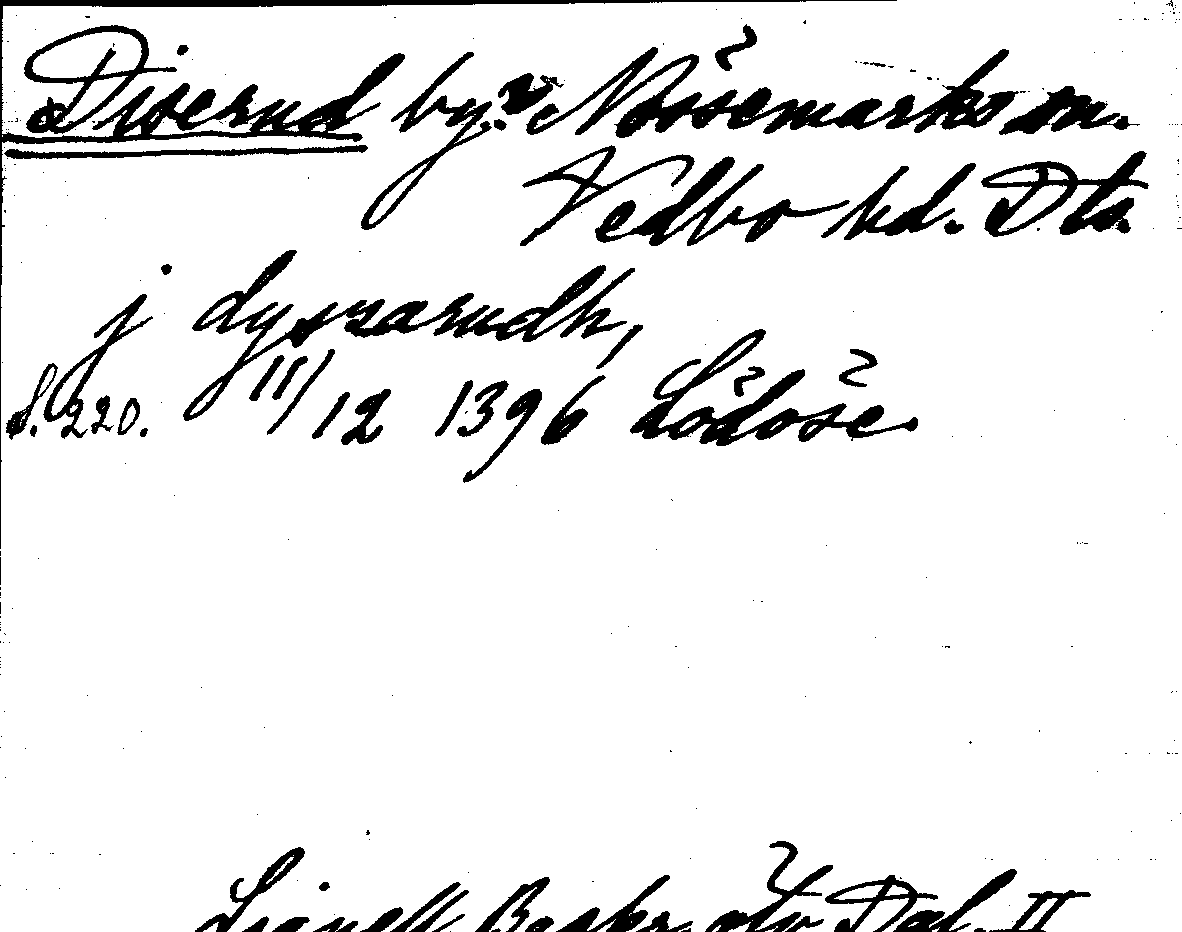 Diserud by. Nössemarks sn.
Vedbo hd. Dls.
j dyszarudh,
S. 220. 11/12 1396 Lödöse.
Lignell Beskr. öfv Dal. II